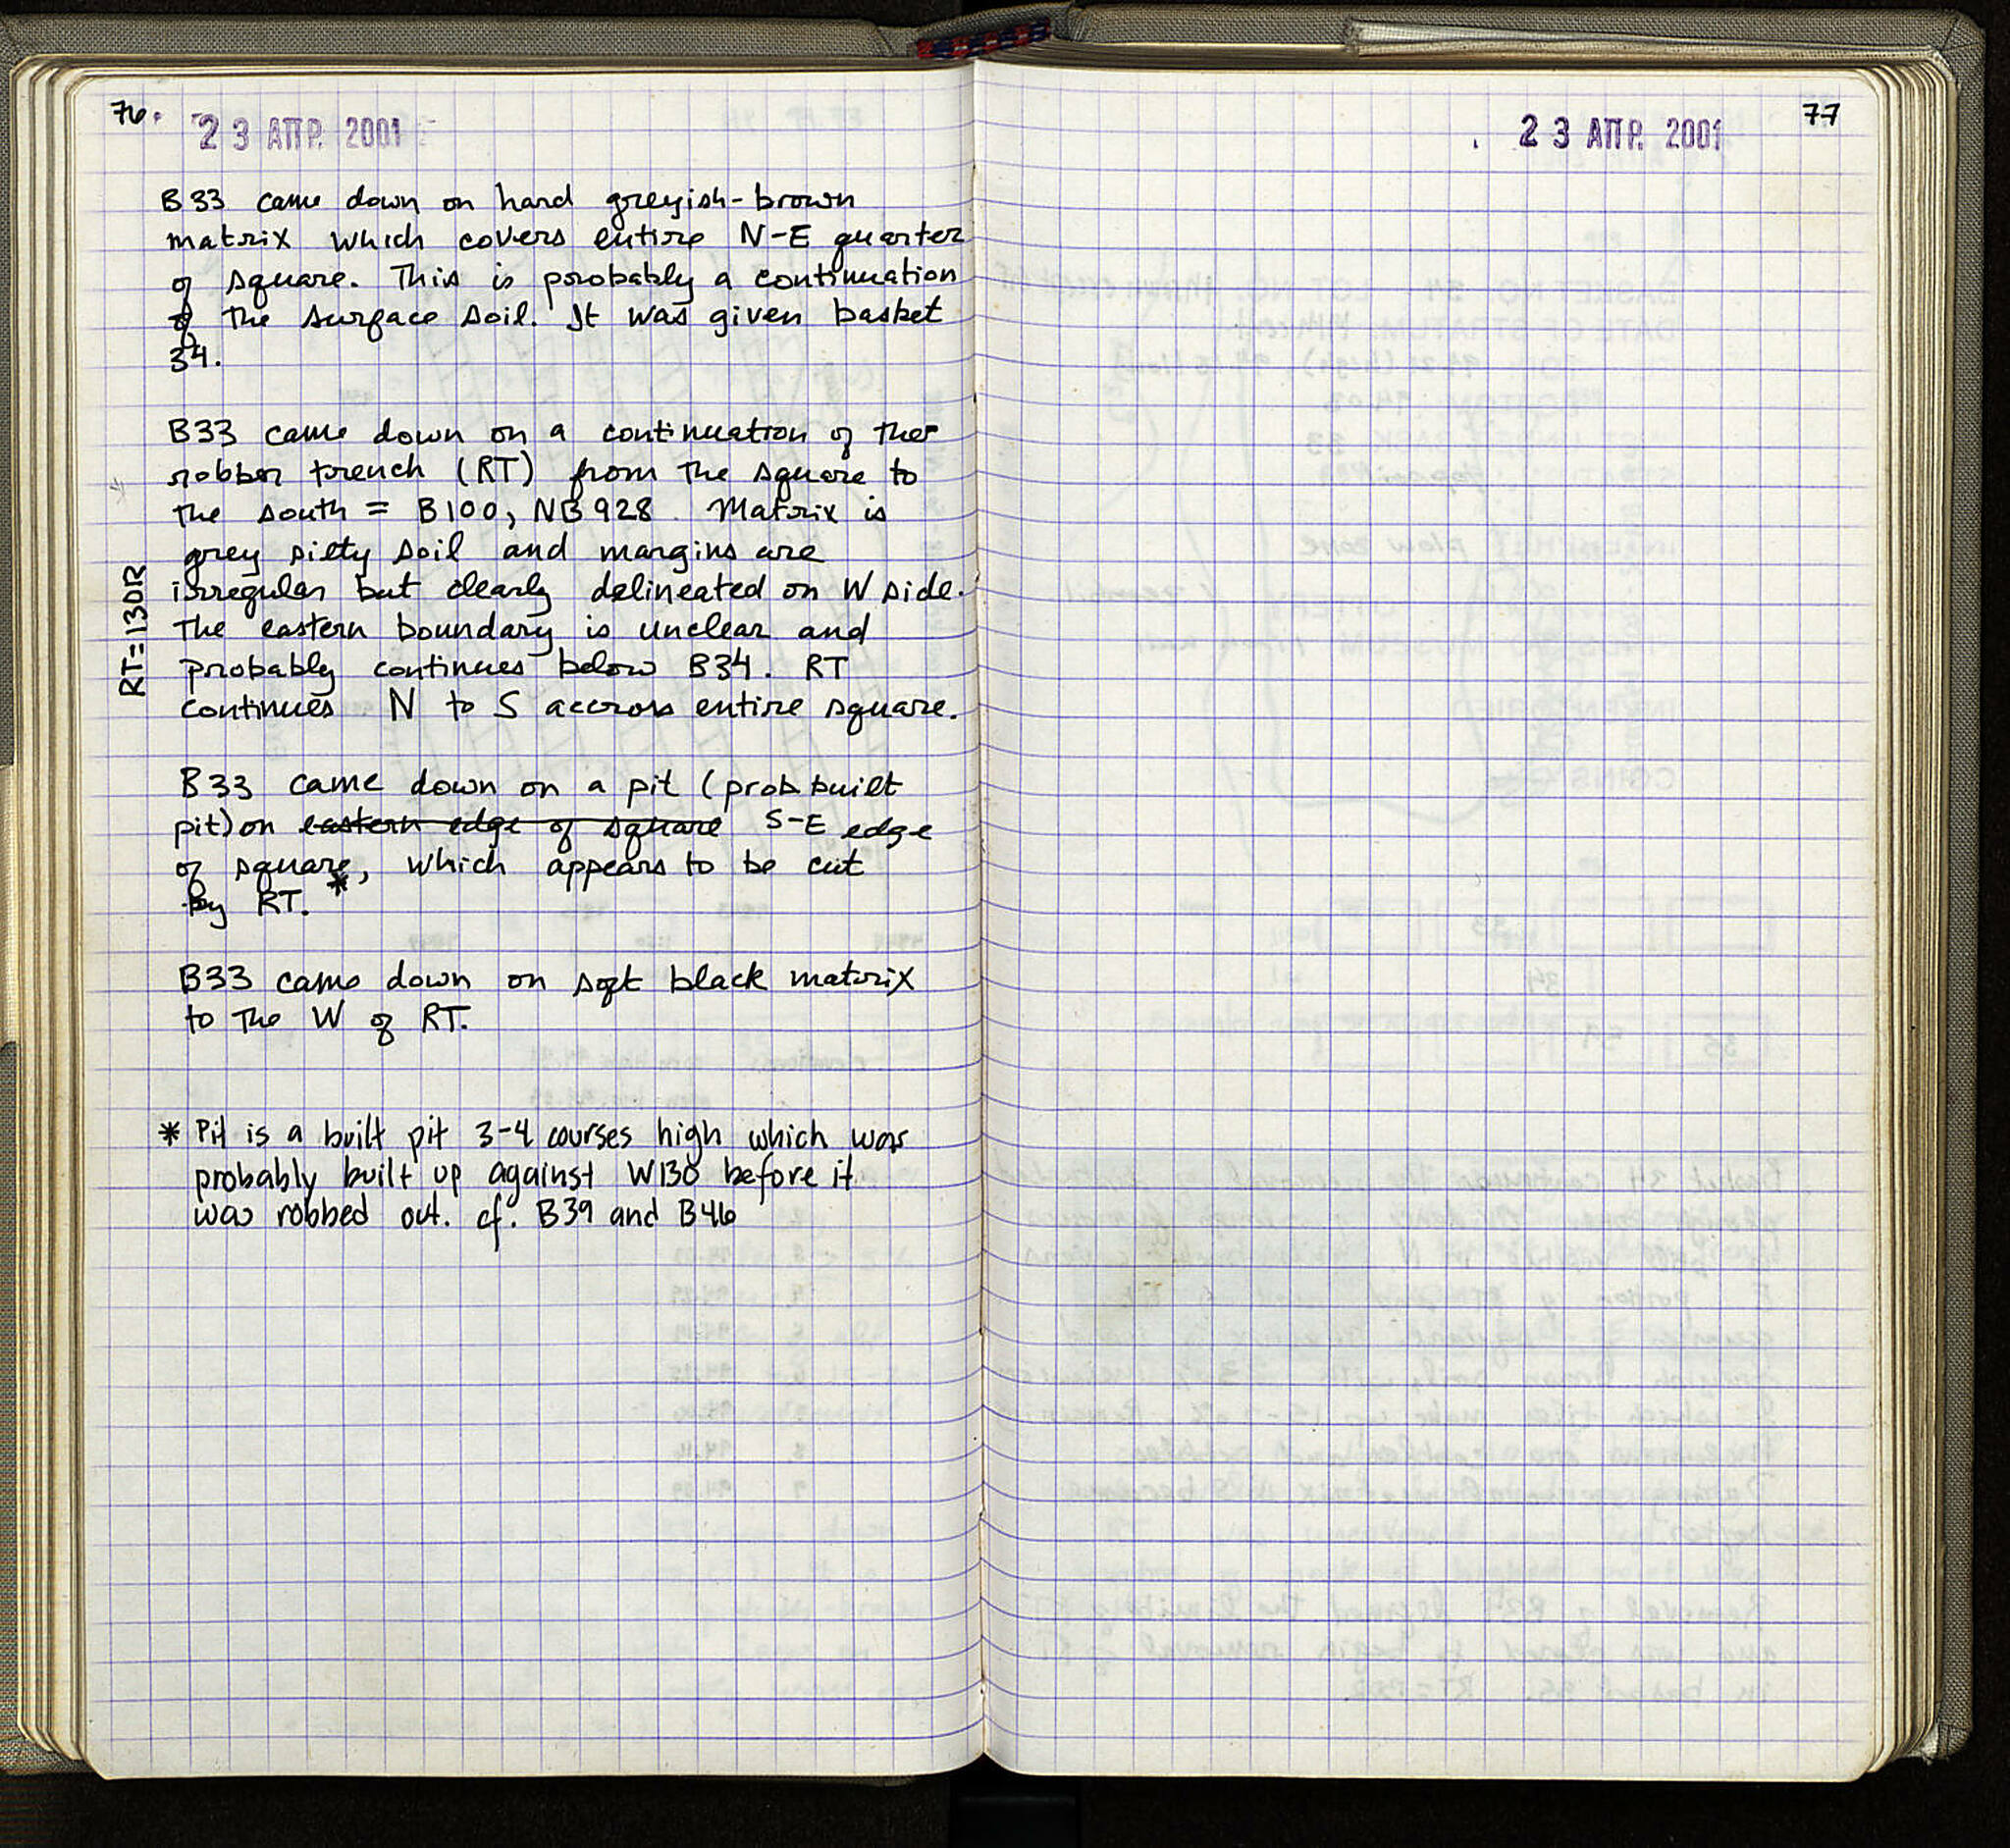 76.
23 ΑΠΡ. 2001
B33 came down on hard greyish-brown
matrix which covers entire N-E quarter
of square. This is probably a continuation
of the surface soil. It was given basket
34.
B33 came down on a continuation of the
robber trench (RT) from the square to
the south = B100, NB928. Matrix is
grey silty soil and margins are
irregular but clearly delineated on W side.
The eastern boundary is unclear and
probably continues below B34. RT
continues N to S accross entire square.
RT=130R
B33 came down on a pit (prob built
pit) on eastern edge of square S-E edge
of square, which appears to be cut
by RT. *
B33 came down on soft black matrix
to the W of RT.
* Pit is a built pit 3-4 courses high which was
probably built up against W130 before it
was robbed out. cf. B39 and B46
77
23 ΑΠΡ. 2001